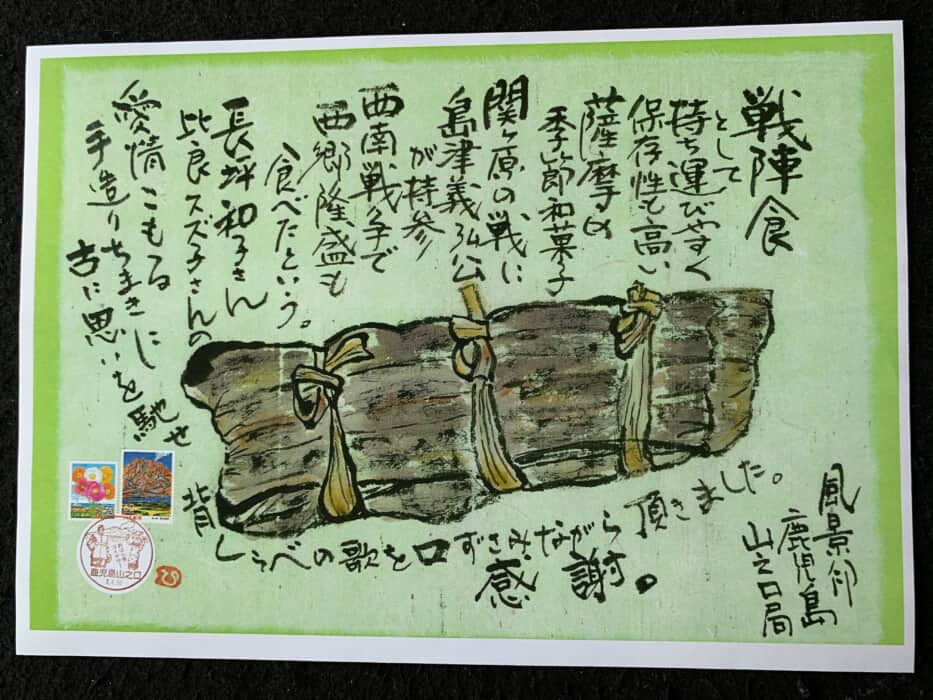 戦陣食
として
持ち運びやすく
保存性も高い
薩摩の
季節和菓子
関ヶ原の戦に
島津義弘公
が持参
西南戦争で
西郷隆盛も
食べたという。
長坪和子さん
比良スズ子さんの
愛情こもる
手造りちまきに
古に思いを馳せ
背しらべの歌を口ずさみながら
頂きました。
感謝。
風景印
鹿児島
山之口局
鹿児島山之口
ひ